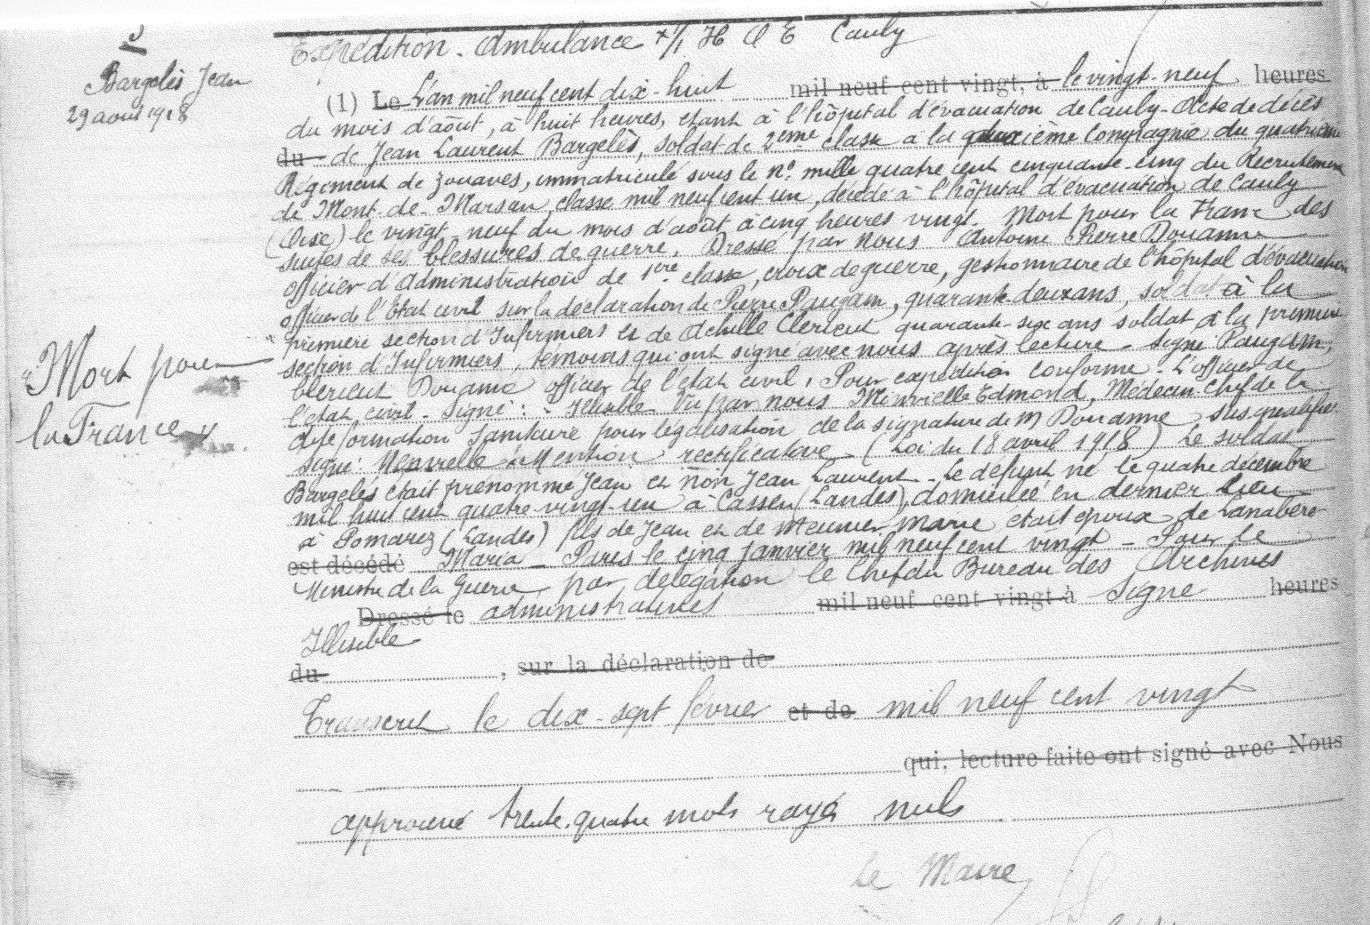 3
Bargelès Jean
29 août 1918
"Mort pour
la France"
Expédition - Ambulance 4/1 H O E Cauly
(1) Le L'an mil neuf cent dix-huit mil neuf cent vingt, à le vingt-neuf heures
du mois d'août, à huit heures, étant à l'hôpital d'évacuation de Cauly - Acte de décès
du de Jean Laurent Bargelès, soldat de 2eme classe à la ième Compagnie du quatrième
Régiment de zouaves, immatriculé sous le n° mille quatre cent cinquante-cinq du Recrutement
de Mont-de-Marsan, classe mil neuf cent un, décédé à l'hôpital d'évacuation de Cauly
(Oise) le vingt-neuf du mois d'août à cinq heures vingt. Mort pour la France des
suites de ses blessures de guerre. Dressé par nous Antoine Pierre Douanne
officier d'Administration de 1ère classe, croix de guerre, gestionnaire de l'hôpital d'évacuation
officier de l'Etat civil sur la déclaration de Pierre Paugam, quarante-deux ans, soldat à la
première section d'Infirmiers et de Achille Clericut quarante-six ans soldat à la première
section d'Infirmiers, témoins qui ont signé avec nous après lecture - signé Paugam,
Clericut Douanne officier de l'état civil, Pour expédition conforme. L'officier de
l'état civil - Signé : - Illisible Vu par nous Minvielle Edmond, Médecin-Chef de la
dite formation sanitaire pour légalisation de la signature de M Douanne sus qualifié
signé : Menvielle - Mention rectificative (Loi du 18 avril 1918) Le soldat
Bargelès était prénommé Jean et non Jean Laurent - Le défunt, né le quatre décembre
mil huit cent quatre-vingt-un à Cassen (Landes), domicilié en dernier lieu
à Pomarez (Landes) fils de Jean et de Meunier Marie était époux de Lanabère
est décédé Maria - Paris le cinq janvier mil neuf cent vingt - Pour le
Ministre de la Guerre par délégation le Chef du Bureau des Archives
Dressé le administratives mil neuf cent vingt à Signé heures
Illisible
du , sur la déclaration de
Transcrit le dix-sept février et de mil neuf cent vingt
qui, lecture faite ont signé avec Nous
approuvé trente-quatre mots rayés nuls
Le Maire